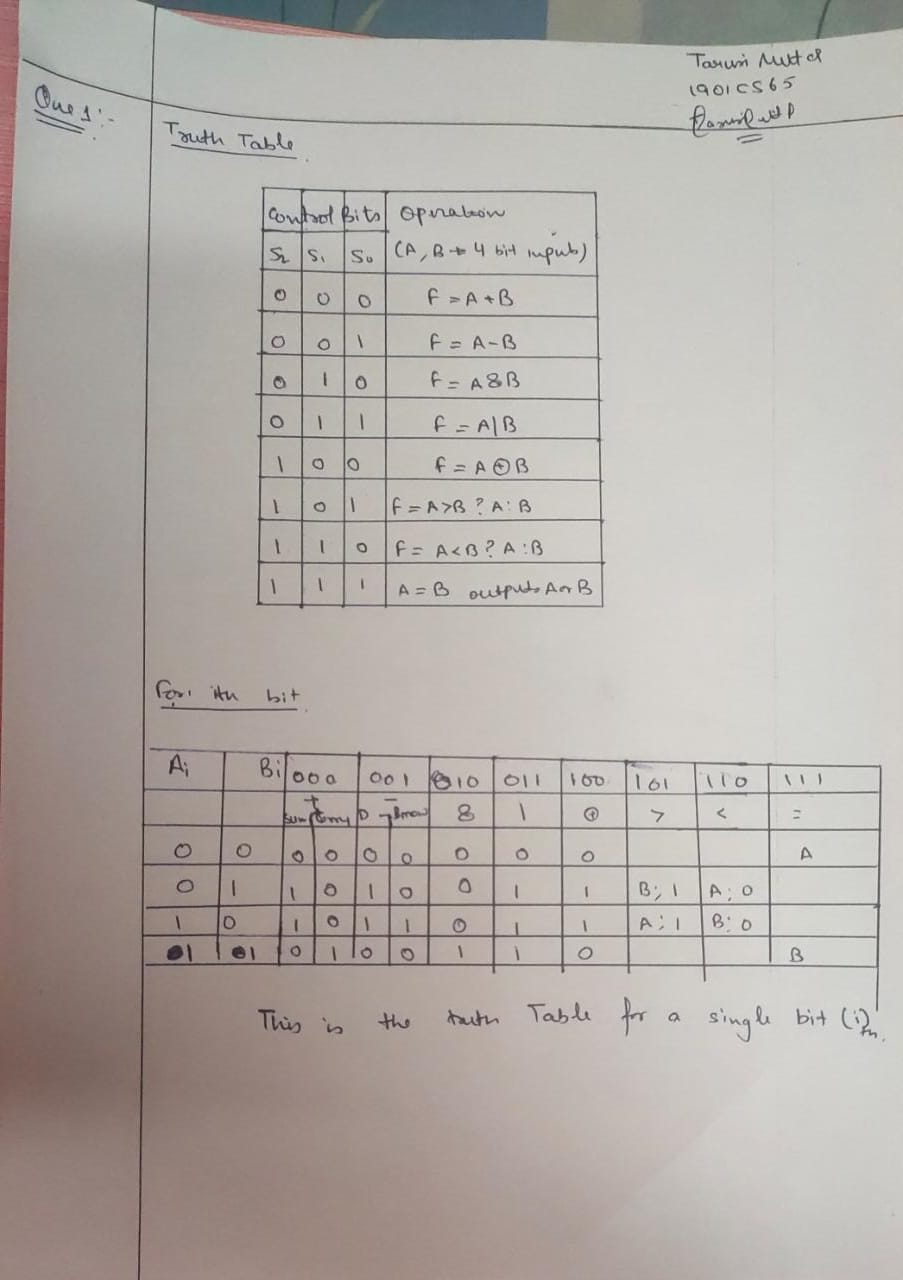 Tarun
1901CS65
Ques 1:-
Truth Table
Control Bits Operation
S2 S1 S0 (A, B → 4 bit inputs)
0 0 0 f = A + B
0 0 1 f = A - B
0 1 0 f = A & B
0 1 1 f = A | B
1 0 0 f = A ⊕ B
1 0 1 f = A > B ? A : B
1 1 0 f = A < B ? A : B
1 1 1 A = B outputs A or B
For ith bit
Ai Bi 000 001 010 011 100 101 110 111
+ -
sum D & | ⊕ > < =
0 0 0 0 0 0 0 0 0 A
0 1 1 0 1 0 0 1 1 B; 1 A; 0
1 0 1 0 1 1 0 1 1 A; 1 B; 0
1 1 0 1 0 0 1 1 0 B
This is the truth Table for a single bit (i)th.